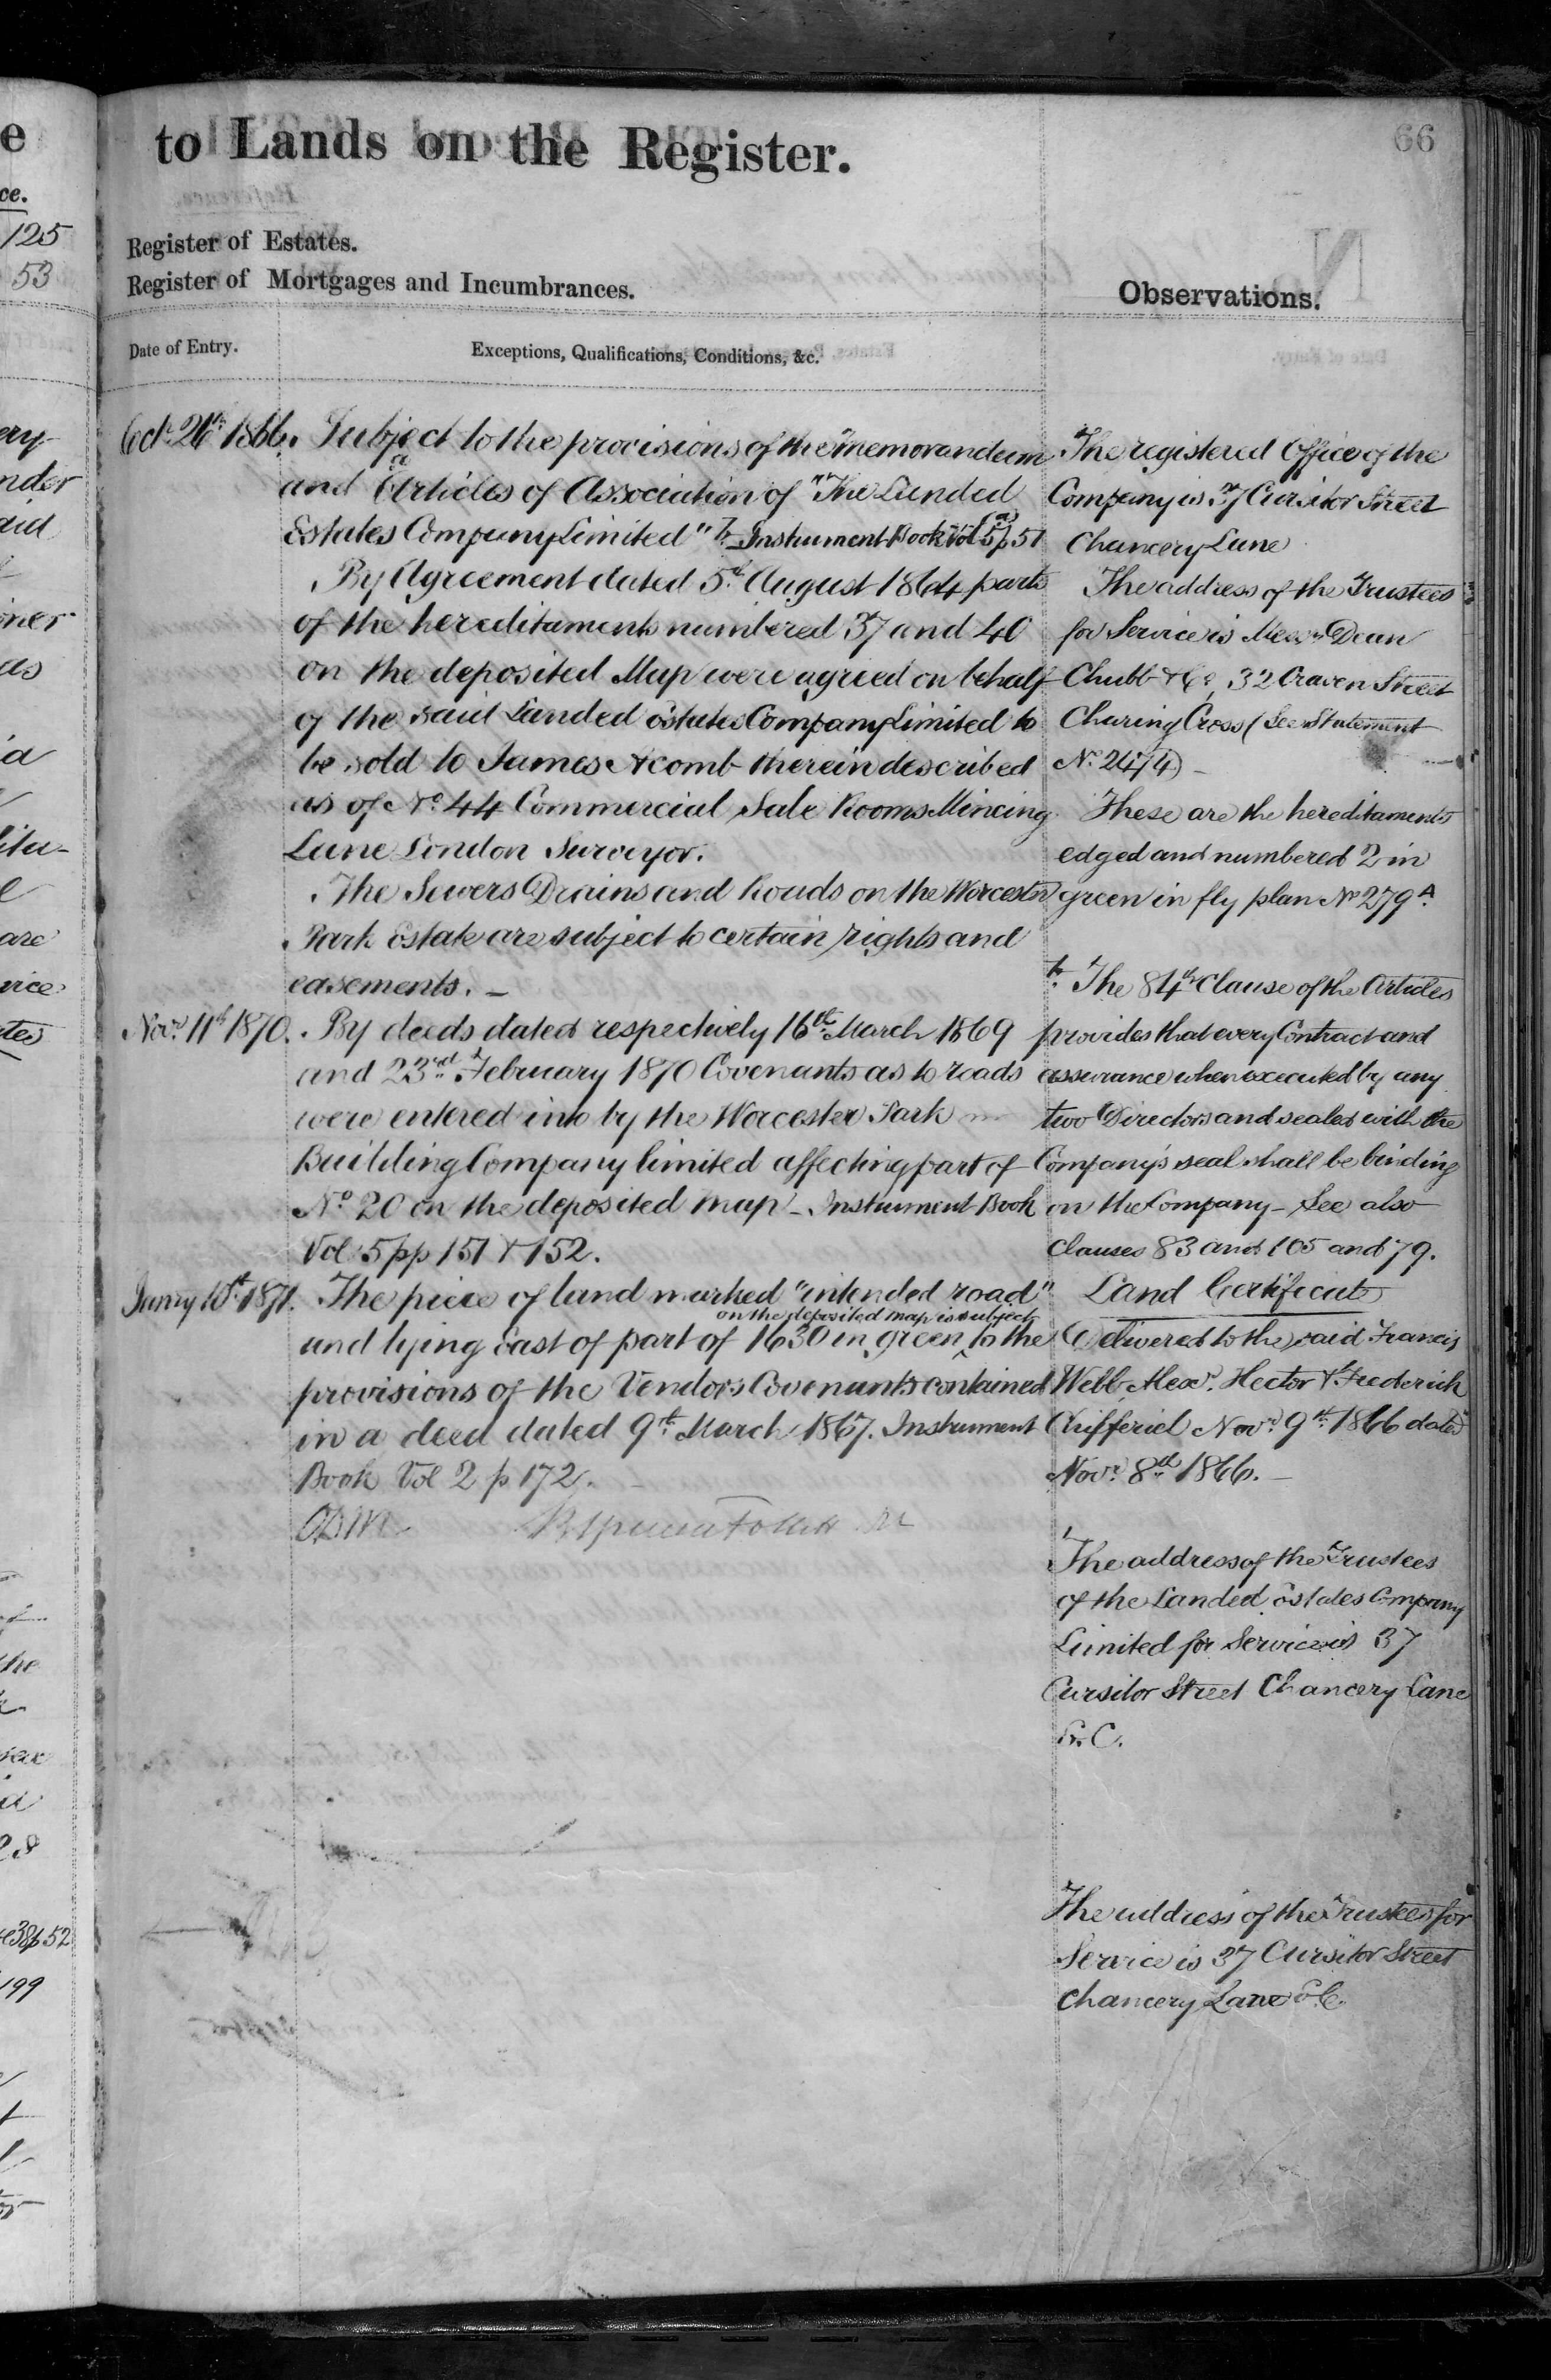 to Lands on the Register.
66
Register of Estates.
Register of Mortgages and Incumbrances.
Observations.
Date of Entry.
Exceptions, Qualifications, Conditions, &c.
Subject to the provisions of the Memorandum
and Articles of Association of "The Landed
Estates Company Limited" Instrument Book Vol 5 p 51
By Agreement dated 5th August 1864 parts
of the hereditaments numbered 37 and 40
on the deposited Map were agreed on behalf
of the said Landed Estates Company Limited to
be sold to James Acomb therein described
as of No. 44 Commercial Sale Rooms Mincing
Lane London Surveyor.
The Sewers Drains and Roads on the Worcester
Park Estate are subject to certain rights and
easements. –
Novr. 11th 1870. By deeds dated respectively 16th March 1869
and 23rd February 1870 Covenants as to roads
were entered into by the Worcester Park
Building Company limited affecting part of
No. 20 on the deposited map – Instrument Book
Vol 5 pp 151 & 152.
Janry 10th 1871. The piece of land marked "intended road"
on the deposited map is subject
and lying East of part of 1630 in green to the
provisions of the Vendors Covenants contained
in a deed dated 9th March 1867. Instrument
Book Vol 2 p 172.
The registered Office of the
Company is 37 Cursitor Street
Chancery Lane
The address of the Trustees
for Service is Messrs Dean
Chubb & Co, 32 Craven Street
Charing Cross (See Statement
No. 2474) –
These are the hereditaments
edged and numbered 2 in
green in fly plan No 279A.
The 84th Clause of the Articles
provides that every Contract and
assurance when executed by any
two Directors and sealed with the
Company's seal shall be binding
on the Company – See also
Clauses 83 and 105 and 79.
Land Certificate
Delivered to the said Francis
Webb Alexr. Hector & Frederick
Chifferiel Novr. 9th 1866 dated
Novr. 8th 1866. –
The address of the Trustees
of the Landed Estates Company
Limited for Service is 37
Cursitor Street Chancery Lane
E.C.
The address of the Trustees for
Service is 37 Cursitor Street
Chancery Lane E.C.